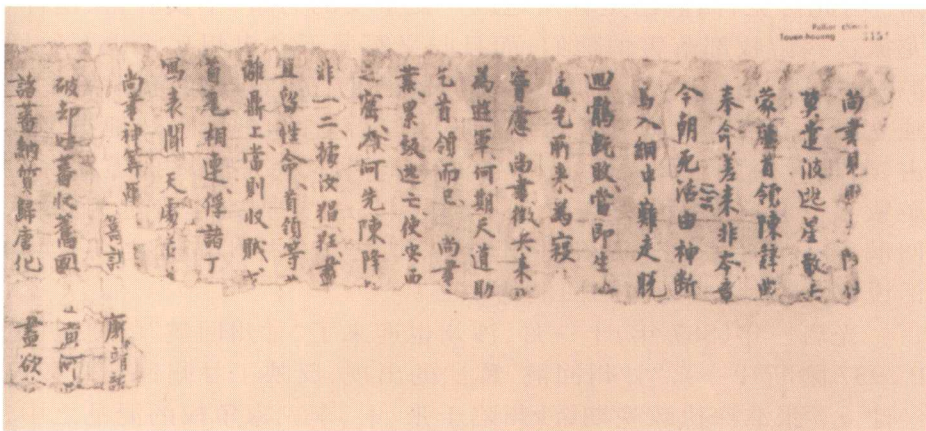 Pelliot chinois
Touen-houang 3451
尚書見賊 降伏
莫遣波逃星散去
蒙 首領陳辭曲
奉命差來非本意
今朝死活由神斷
鳥入網中難走脫
迴鶻既敗當即生
乞所來為寇
實慮尚書徵兵來
為遊軍何期天道助
乞首領而已尚書
業累致逃亡使安西
之窟 何先陳降
非一二 汝猖狂盡
且留性命首領等
離鼎上當則收賊
首尾相連俘諸丁
寫表聞天
尚書神筭
破卻吐蕃收舊國 黃河
諸蕃納質歸唐化 盡欲